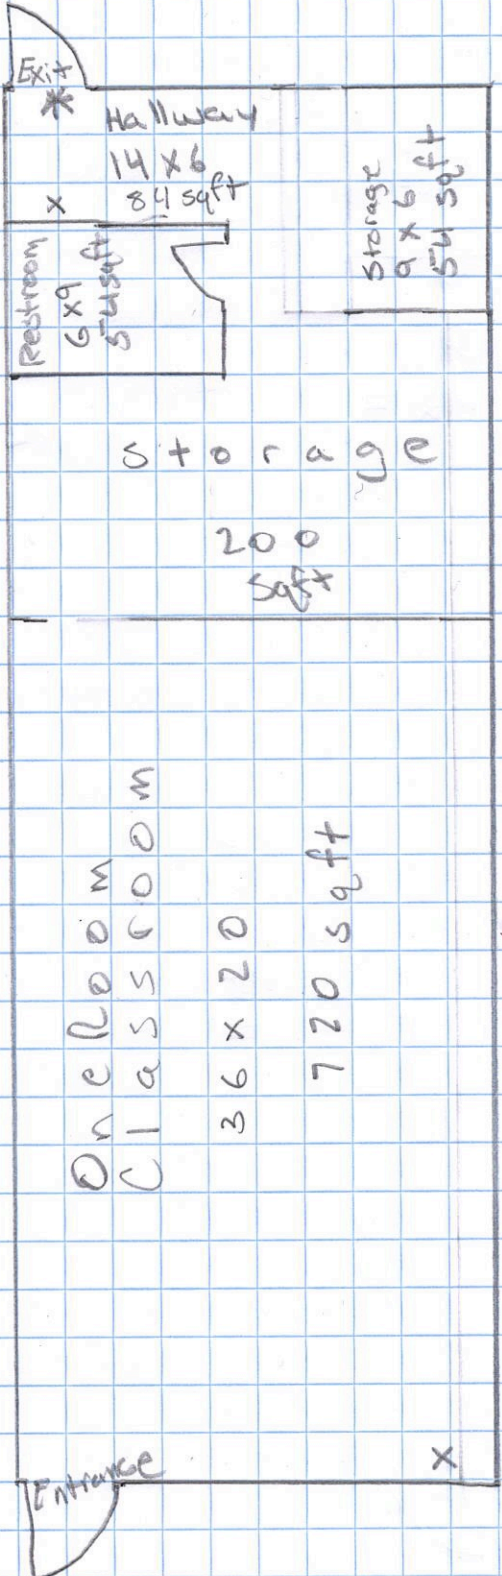 Exit
*
Hallway
14 x 6
84 sqft
x
Storage
9 x 6
54 sqft
Restroom
6 x 9
54 sqft
storage
200
sqft
One Room
Classroom
36 x 20
720 sqft
x
Entrance